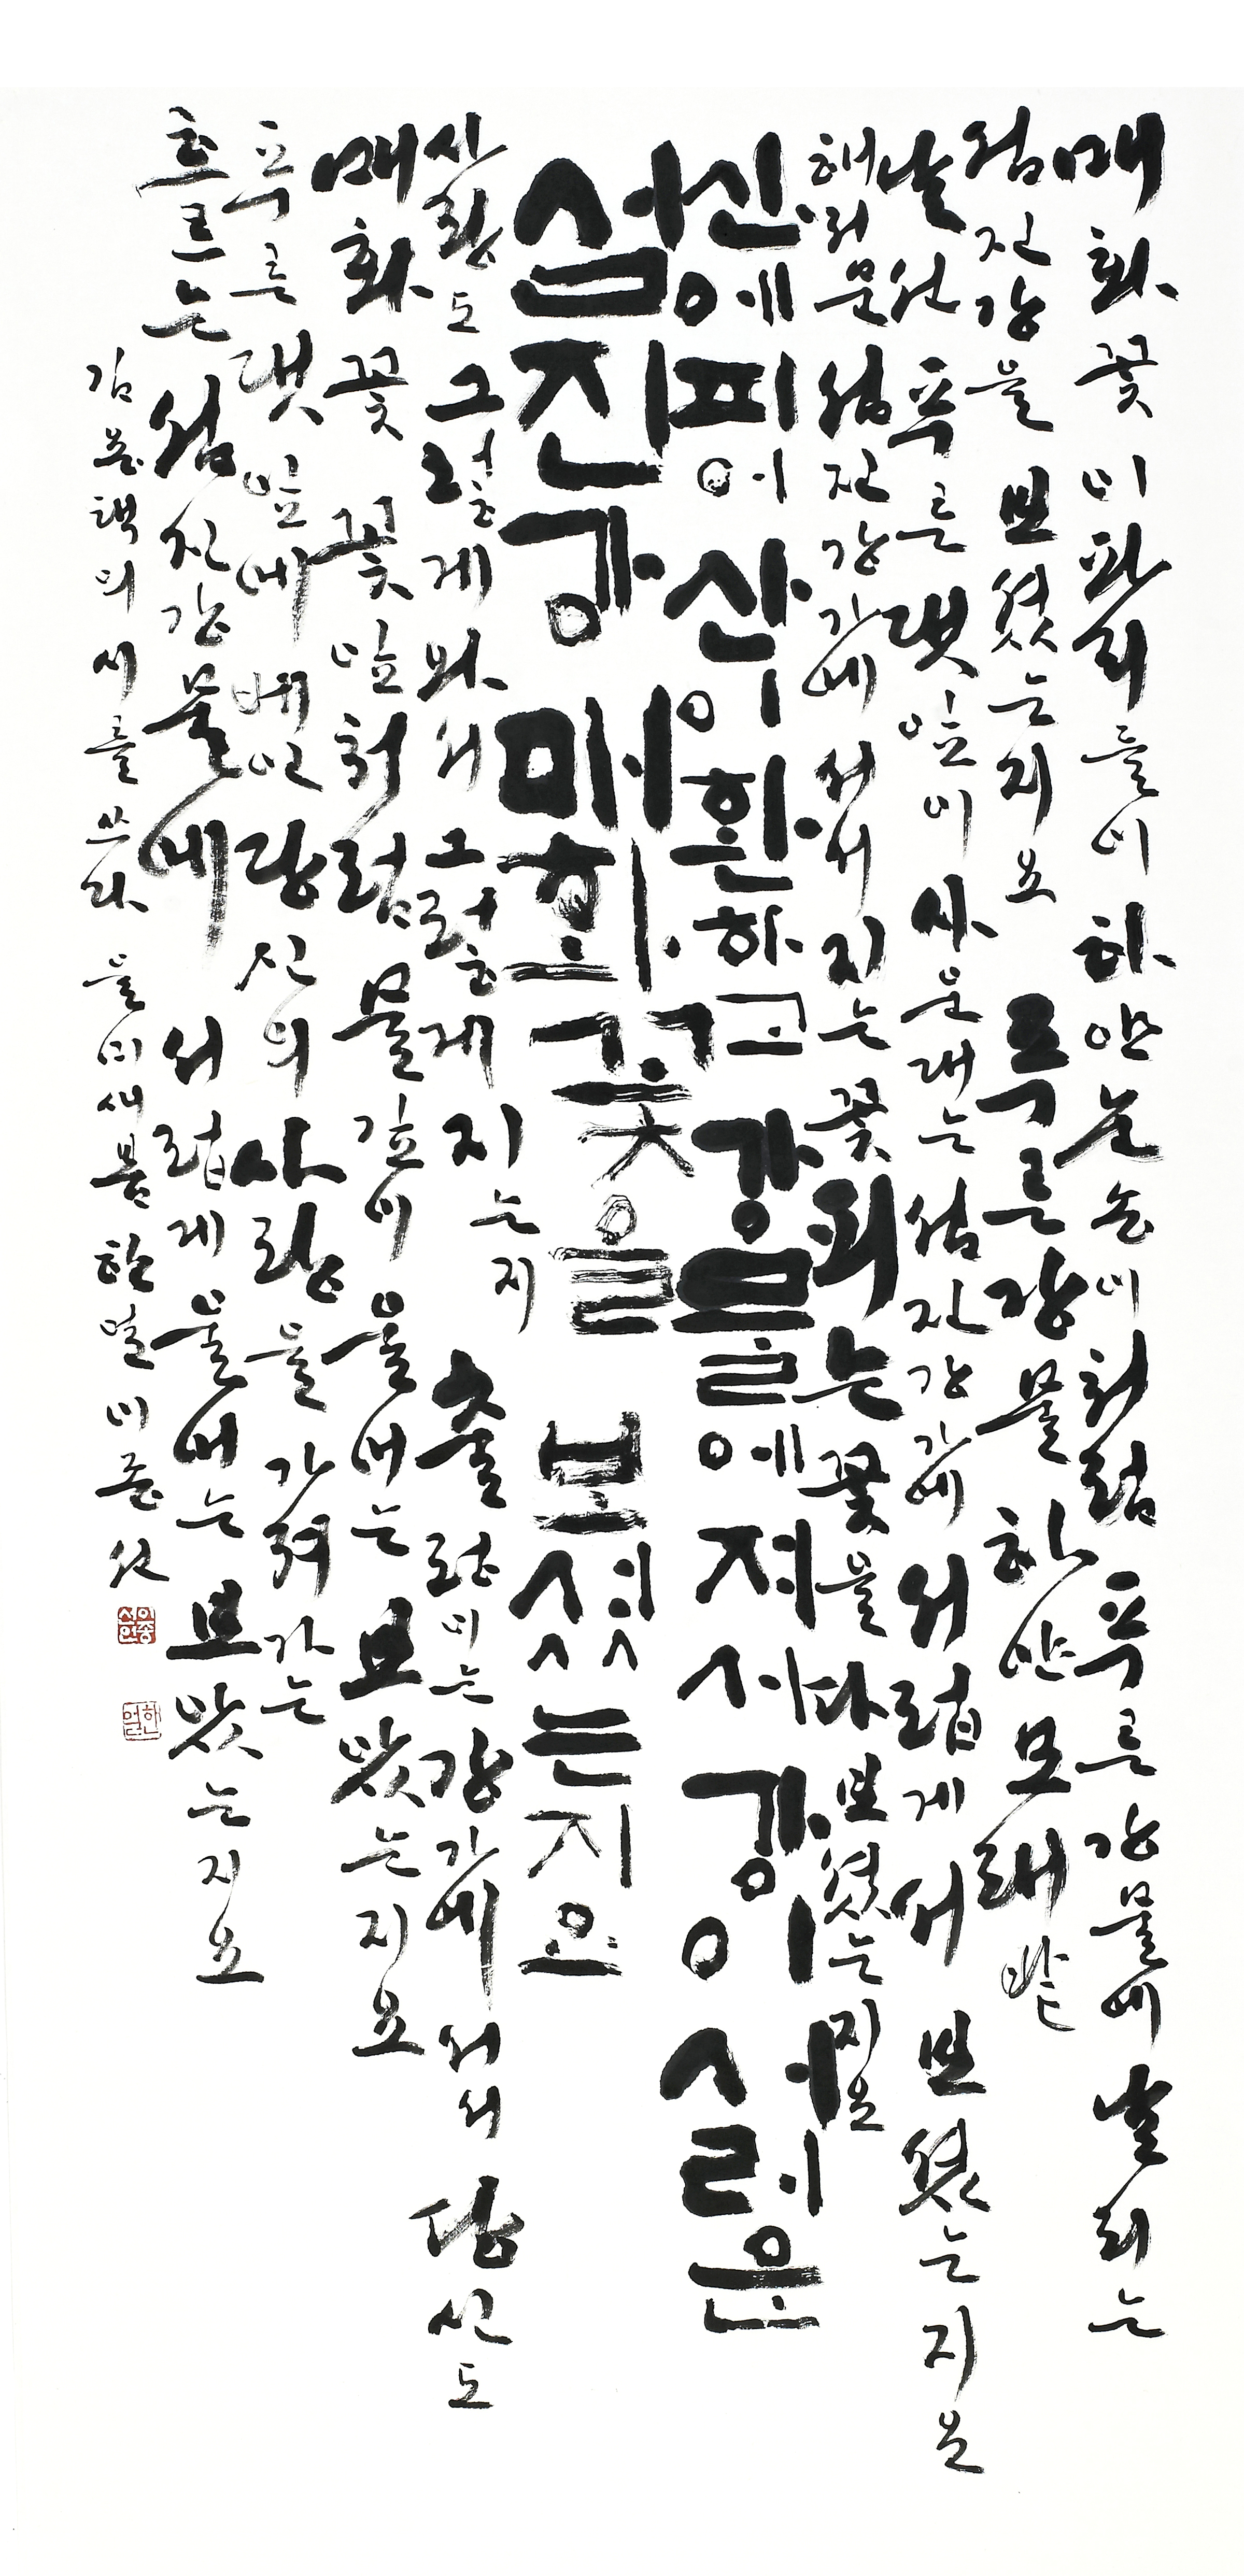 매화꽃 이파리들이 하얀 눈송이처럼 푸른 강물에 날리는
섬진강을 보셨는지요 푸른 강물 하얀 모래밭
날선 푸른 댓잎이 사운대는 섬진강가에 서럽게 서 보셨는지요
해저문 섬진강가에 서서 지는 꽃 피는 꽃을 다 보셨는지요
산에 피어 산이 환하고 강물에 져서 강이 서러운
섬진강 매화꽃을 보셨는지요
사랑도 그렇게 와서 그렇게 지는지 출렁이는 강가에 서서 당신도
매화꽃 꽃잎처럼 물 깊이 울어는 보았는지요
푸른 댓잎에 베인 당신의 사랑을 가져가는
흐르는 섬진강 물에 서럽게 울어는 보았는지요
김용택의 시를 쓰다 을미새봄 한얼 이종선
이종선인
한얼